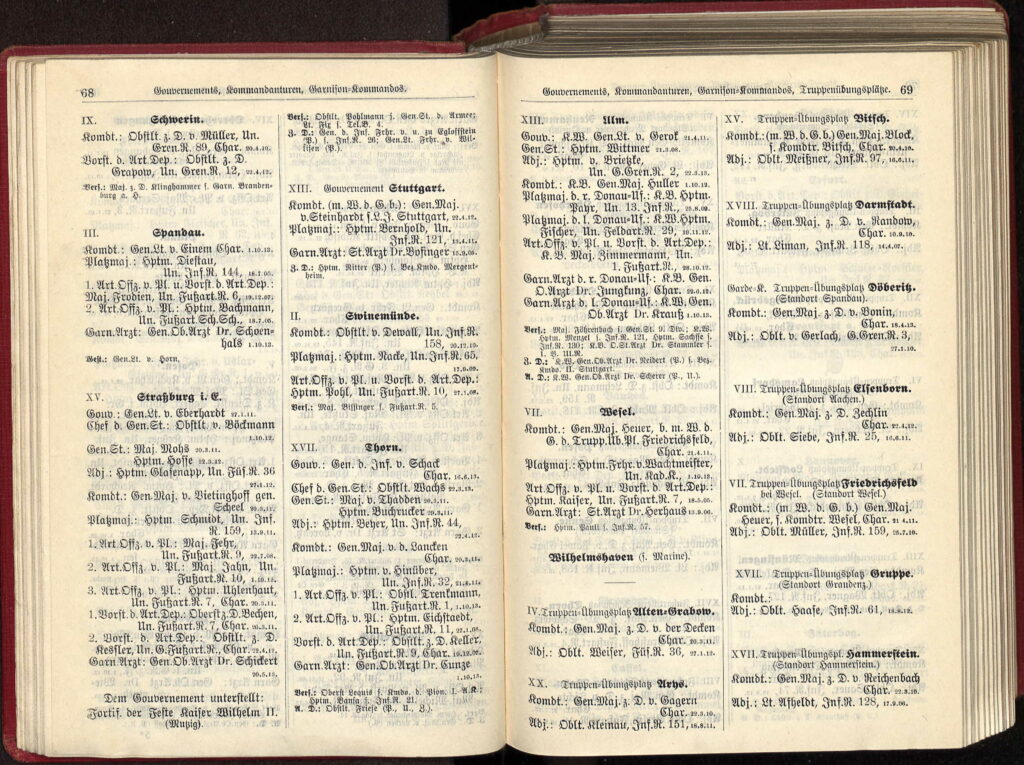 68
Gouvernements, Kommandanturen, Garnison-Kommandos.
IX. Schwerin.
Komdt: Obstlt. z. D. v. Müller, Un.
Gren.R. 89, Char. 20.4.10.
Vorst. d. Art.Dep.: Obstlt. z. D.
Grapow, Un. Gren.R. 12, 22.4.12.
Vers.: Maj. z. D. Klinghammer s. Garn. Branden-
burg a. H.
III. Spandau.
Komdt.: Gen.Lt. v. Einem Char. 1.10.13.
Platzmaj.: Hptm. Diestau,
Un. Inf.R. 144, 18.7.05.
1. Art.Offz. v. Pl. u. Vorst. d. Art.Dep.:
Maj. Frodien, Un. Fußart.R. 6, 19.12.07.
2. Art.Offz. v. Pl.: Hptm. Bachmann,
Un. Fußart.Sch.Sch., 18.7.08.
Garn.Arzt: Gen.Ob.Arzt Dr. Schoen-
hals 1.10.13.
Gest.: Gen.Lt. v. Horn.
XV. Straßburg i. E.
Gouv.: Gen.Lt. v. Eberhardt 27.1.11.
Chef d. Gen.St.: Obstlt. v. Böckmann
1.10.12.
Gen.St.: Maj. Mohs 20.3.11.
Hptm. Hosse 22.3.12.
Adj.: Hptm. Glasenapp, Un. Füs.R. 36
27.1.12.
Komdt.: Gen.Maj. v. Vietinghoff gen.
Scheel 20.3.11.
Platzmaj.: Hptm. Schmidt, Un. Inf.
R. 159, 13.9.11.
1. Art.Offz. v. Pl.: Maj. Fehr,
Un. Fußart.R. 9, 22.7.08.
2. Art.Offz. v. Pl.: Maj. Jahn, Un.
Fußart.R. 10, 1.10.12.
3. Art.Offz. v. Pl.: Hptm. Uhlenhaut,
Un. Fußart.R. 7, Char. 20.3.11.
1. Vorst. d. Art.Dep.: Oberst z. D. Bechen,
Un. Fußart.R. 7, Char. 20.3.11.
2. Vorst. d. Art.Dep.: Obstlt. z. D.
Kessler, Un. G.Fußart.R., Char. 22.4.12.
Garn.Arzt: Gen.Ob.Arzt Dr. Schickert
20.5.13.
Dem Gouvernement unterstellt:
Fortif. der Feste Kaiser Wilhelm II.
(Mutzig).
Vers.: Obstlt. Pohlmann s. Gen.St. d. Armee;
Lt. Fix s. Tel.B. 4.
Z. D.: Gen. d. Inf. Frhr. v. u. zu Egloffstein
(P.) s. Inf.R. 26; Gen.Lt. Frhr. v. Wil-
lisen (P.).
XIII. Gouvernement Stuttgart.
Komdt. (m. W. d. G. b.): Gen.Maj.
v. Steinhardt s. L.J. Stuttgart, 22.4.12.
Platzmaj.: Hptm. Bernhold, Un.
Inf.R. 121, 13.4.11.
Garn.Arzt: St.Arzt Dr. Bofinger 15.9.08.
Z. D.: Hptm. Ritter (P.) s. Bez.Kmdo. Mergent-
heim.
II. Swinemünde.
Komdt.: Obstlt. v. Dewall, Un. Inf.R.
158, 20.12.10.
Platzmaj.: Hptm. Nacke, Un. Inf.R. 65,
17.9.09.
Art.Offz. v. Pl. u. Vorst. d. Art.Dep.:
Hptm. Pohl, Un. Fußart.R. 10, 27.1.08.
Vers.: Maj. Biffinger s. Fußart.R. 5.
XVII. Thorn.
Gouv.: Gen. d. Inf. v. Schack
Char. 16.6.13.
Chef d. Gen.St.: Obstlt. Wachs 22.3.13.
Gen.St.: Maj. v. Thadden 20.3.11.
Hptm. Buchrucker 20.3.11.
Adj.: Hptm. Beyer, Un. Inf.R. 44,
22.4.12.
Komdt.: Gen.Maj. v. d. Lancken
Char. 20.3.11.
Platzmaj.: Hptm. v. Hinüber,
Un. Inf.R. 32, 21.6.11.
1. Art.Offz. v. Pl.: Obstl. Trenkmann,
Un. Fußart.R. 1, 1.10.13.
2. Art.Offz. v. Pl.: Hptm. Eichstaedt,
Un. Fußart.R. 11, 27.1.08.
Vorst. d. Art.Dep.: Obstlt. z. D. Keller,
Un. Fußart.R. 9, Char. 19.12.07.
Garn.Arzt: Gen.Ob.Arzt Dr. Cunze
1.10.13.
Vers.: Oberst Lequis s. Kmdo. d. Pion. I. A.K.;
Hptm. Bansa s. Inf.R. 21.
A. D.: Obstlt. Friese (P., U., Z.).
Gouvernements, Kommandanturen, Garnison-Kommandos, Truppenübungsplätze. 69
XIII. Ulm.
Gouv.: K.W. Gen.Lt. v. Gerok 21.4.11.
Gen.St.: Hptm. Wittmer 21.3.08.
Adj.: Hptm. v. Brietzke,
Un. G.Gren.R. 2, 22.3.13.
Komdt.: K.B. Gen.Maj. Huller 1.10.12.
Platzmaj. d. r. Donau-Uf.: K.B. Hptm.
Payr, Un. 13. Inf.R., 25.8.09.
Platzmaj. d. l. Donau-Uf.: K.W. Hptm.
Fischer, Un. Feldart.R. 29, 10.11.12.
Art.Offz. v. Pl. u. Vorst. d. Art.Dep.:
K. B. Maj. Zimmermann, Un.
1. Fußart.R. 28.10.12.
Garn.Arzt d. r. Donau-Uf.: K.B. Gen.
O.Arzt Dr. Jungkunz, Char. 22.6.12.
Garn.Arzt d. l. Donau-Uf.: K.W. Gen.
Ob.Arzt Dr. Krauß 1.10.13.
Vers.: Maj. Föhrenbach s. Gen.St. 9. Div.; K.W.
Hptm. Menzel s. Inf.R. 121, Hptm. Sachsse s.
Inf.R. 180; K.B. O.St.Arzt Dr. Stammler s.
1. B. Ul.R.
Z. D.: K.W. Gen.Ob.Arzt Dr. Neidert (P.) s. Bez.
Kmdo. II. Stuttgart.
A. D.: K.W. Gen.Ob.Arzt Dr. Scherer (P., U.).
VII. Wesel.
Komdt.: Gen.Maj. Heuer, b. m. W. d.
G. d. Trupp.Üb.Pl. Friedrichsfeld,
Char. 21.4.11.
Platzmaj.: Hptm. Frhr. v. Wachtmeister,
Un. Kad.K., 1.10.13.
Art.Offz. v. Pl. u. Vorst. d. Art.Dep.:
Hptm. Kaiser, Un. Fußart.R. 7, 18.5.05.
Garn.Arzt: St.Arzt Dr. Herhaus 13.9.06.
Vers.: Hptm. Pauli s. Inf.R. 57.
Wilhelmshaven (s. Marine).
IV. Truppen-Übungsplatz Alten-Grabow.
Komdt.: Gen.Maj. z. D. v. der Decken
Char. 20.3.11.
Adj.: Oblt. Weiser, Füs.R. 36, 27.1.12.
XX. Truppen-Übungsplatz Arys.
Komdt.: Gen.Maj. z. D. v. Gagern
Char. 22.3.10.
Adj.: Oblt. Kleinau, Inf.R. 151, 18.8.11.
XV. Truppen-Übungsplatz Bitsch.
Komdt.: (m. W. d. G. b.) Gen.Maj. Block,
s. Komdtr. Bitsch, Char. 21.4.11.
Adj.: Oblt. Meißner, Inf.R. 97, 16.6.11.
XVIII. Truppen-Übungsplatz Darmstadt.
Komdt.: Gen.Maj. z. D. v. Randow,
Char. 10.9.10.
Adj.: Lt. Liman, Inf.R. 118, 14.4.07.
Garde-K. Truppen-Übungsplatz Döberitz.
(Standort Spandau).
Komdt.: Gen.Maj. z. D. v. Bonin,
Char. 18.4.13.
Adj.: Oblt. v. Gerlach, G.Gren.R. 3,
27.1.10.
VIII. Truppen-Übungsplatz Elsenborn.
(Standort Aachen.)
Komdt.: Gen.Maj. z. D. Zechlin
Char. 22.4.12.
Adj.: Oblt. Siebe, Inf.R. 25, 16.6.11.
VII. Truppen-Übungsplatz Friedrichsfeld
bei Wesel. (Standort Wesel.)
Komdt.: (m. W. d. G. b.) Gen.Maj.
Heuer, s. Komdtr. Wesel, Char. 21.4.11.
Adj.: Oblt. Müller, Inf.R. 159, 25.7.10.
XVII. Truppen-Übungsplatz Gruppe.
(Standort Graudenz.)
Komdt.:
Adj.: Oblt. Haase, Inf.R. 61, 18.8.12.
XVII. Truppen-Übungspl. Hammerstein.
(Standort Hammerstein.)
Komdt.: Gen.Maj. z. D. v. Reichenbach
Char. 22.3.10.
Adj.: Lt. Afheldt, Inf.R. 128, 17.9.06.